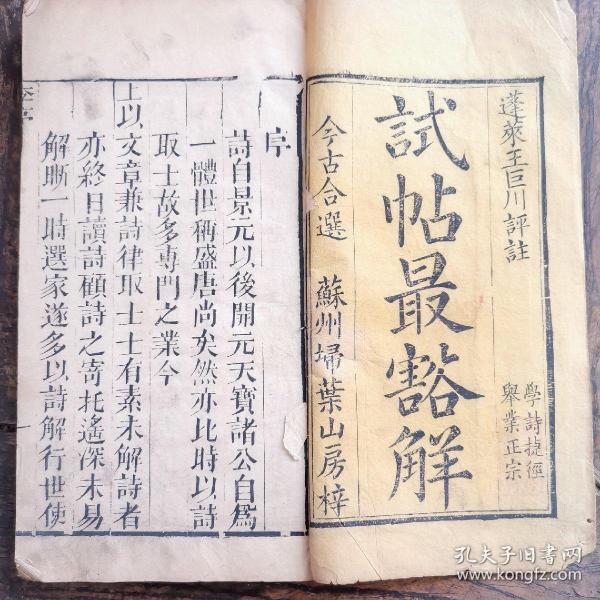 蓬萊王巨川評註
學詩捷徑
舉業正宗
試帖最豁解
今古合選
蘇州埽葉山房梓
序
詩自景元以後開元天寶諸公自爲
一體世稱盛唐尚矣然亦比時以詩
取士故多專門之業今
上以文章兼詩律取士士有素未解詩者
亦終日讀詩顧詩之寄托遙深未易
解晣一時選家遂多以詩解行世使
孔夫子旧书网
www.kongfz.com